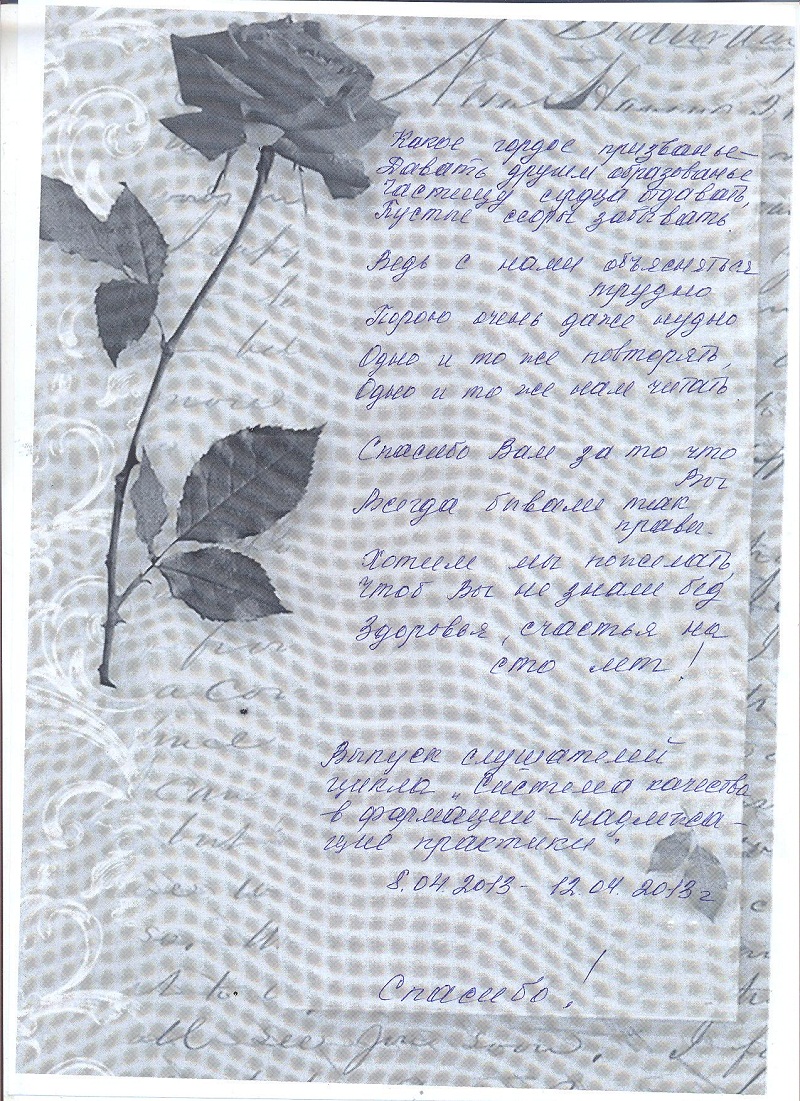 Saturday
Какое гордое призванье
Давать другим образованье
Частицу сердца отдавать,
Пустые ссоры забывать.
Ведь с нами объясняться
трудно
Порою очень даже нудно
Одно и то же повторять,
Одно и то же нам читать
Спасибо Вам за то что
Вы
Всегда бывали так
правы.
Хотим мы пожелать,
Чтоб Вы не знали бед
Здоровья, счастья на
сто лет!
Выпуск слушателей
цикла „Система качества
в фармации – надлежа-
щие практики"
8.04.2013 – 12.04.2013 г
Спасибо!
all see you soon.